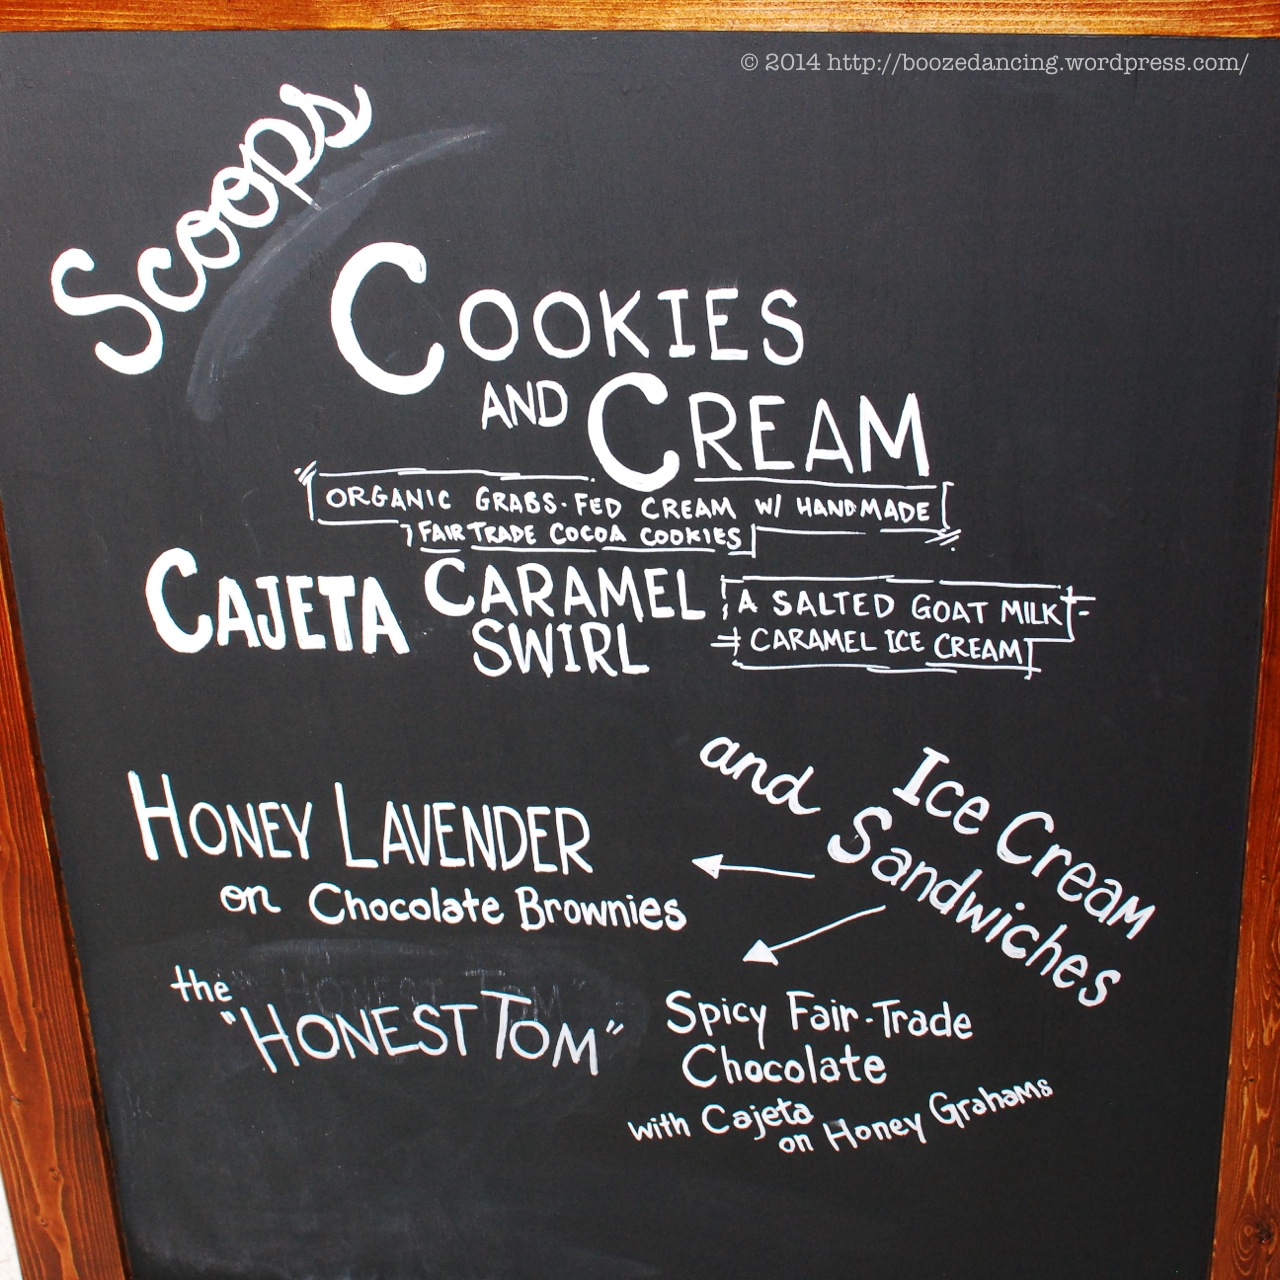 © 2014 http://boozedancing.wordpress.com/
Scoops
COOKIES
AND CREAM
ORGANIC GRASS-FED CREAM W/ HANDMADE
FAIR TRADE COCOA COOKIES
CAJETA CARAMEL
SWIRL
A SALTED GOAT MILK
CARAMEL ICE CREAM
and Ice Cream
Sandwiches
HONEY LAVENDER
on Chocolate Brownies
the
"HONEST TOM"
Spicy Fair-Trade
Chocolate
with Cajeta
on Honey Grahams